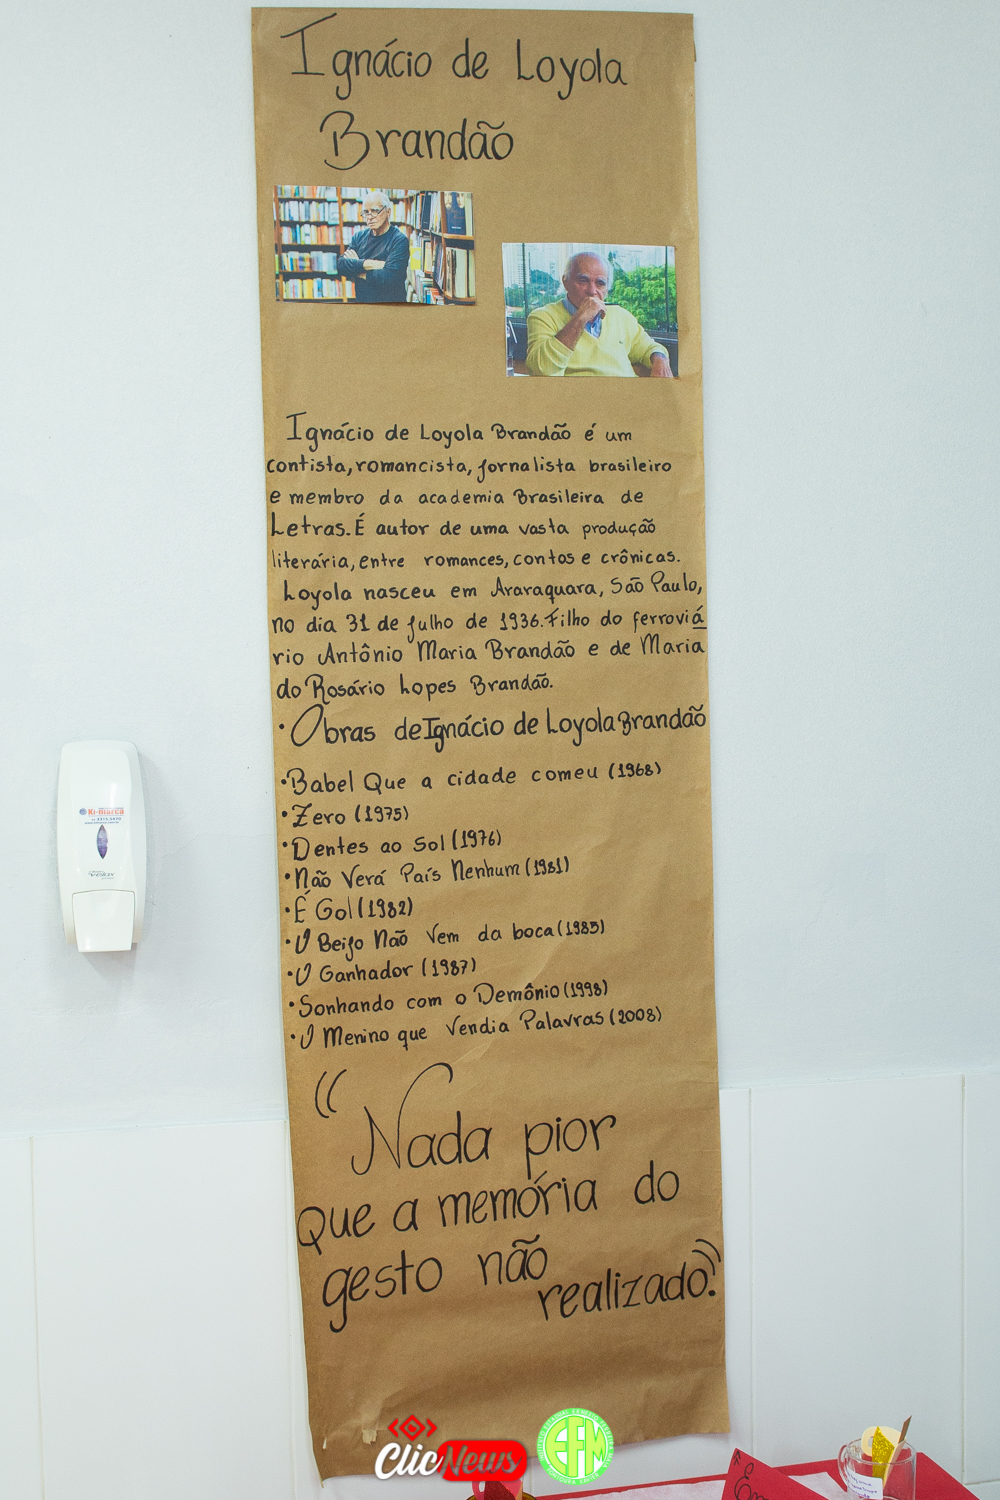 Ignácio de Loyola
Brandão
Ignácio de Loyola Brandão é um
contista, romancista, jornalista brasileiro
e membro da academia Brasileira de
Letras. É autor de uma vasta produção
literária, entre romances, contos e crônicas.
Loyola nasceu em Araraquara, São Paulo,
no dia 31 de julho de 1936. Filho do ferroviá
rio Antônio Maria Brandão e de Maria
do Rosário Lopes Brandão.
• Obras de Ignácio de Loyola Brandão
• Babel Que a cidade comeu (1968)
• Zero (1975)
• Dentes ao Sol (1976)
• Não Verá País Nenhum (1981)
• É Gol (1982)
• O Beijo Não Vem da boca (1985)
• O Ganhador (1987)
• Sonhando com o Demônio (1998)
• O Menino que Vendia Palavras (2008)
"Nada pior
que a memória do
gesto não
realizado."
Ki-marca
ClicNews
EFM